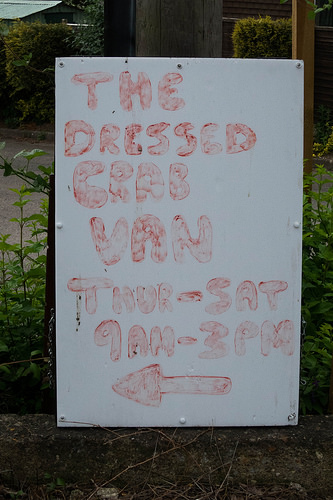 THE
DRESSED
CRAB
VAN
THUR-SAT
9AM-3PM